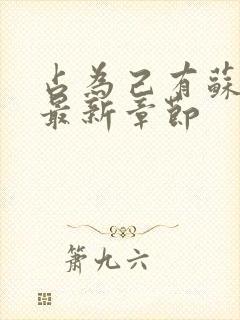 占為己有蘇
最新章節
簫九六